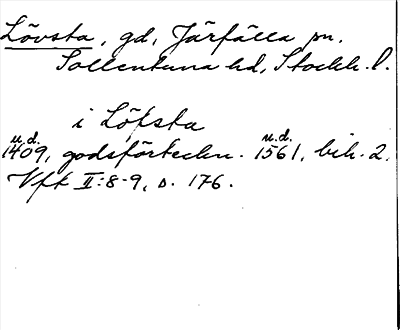 Lövsta, gd, Järfälla sn.
Sollentuna hd, Stockh. l.
i Löfsta
u.d. u.d.
1409, godsförteckn. 1561, bih. 2.
Vft II:8-9, s. 176.